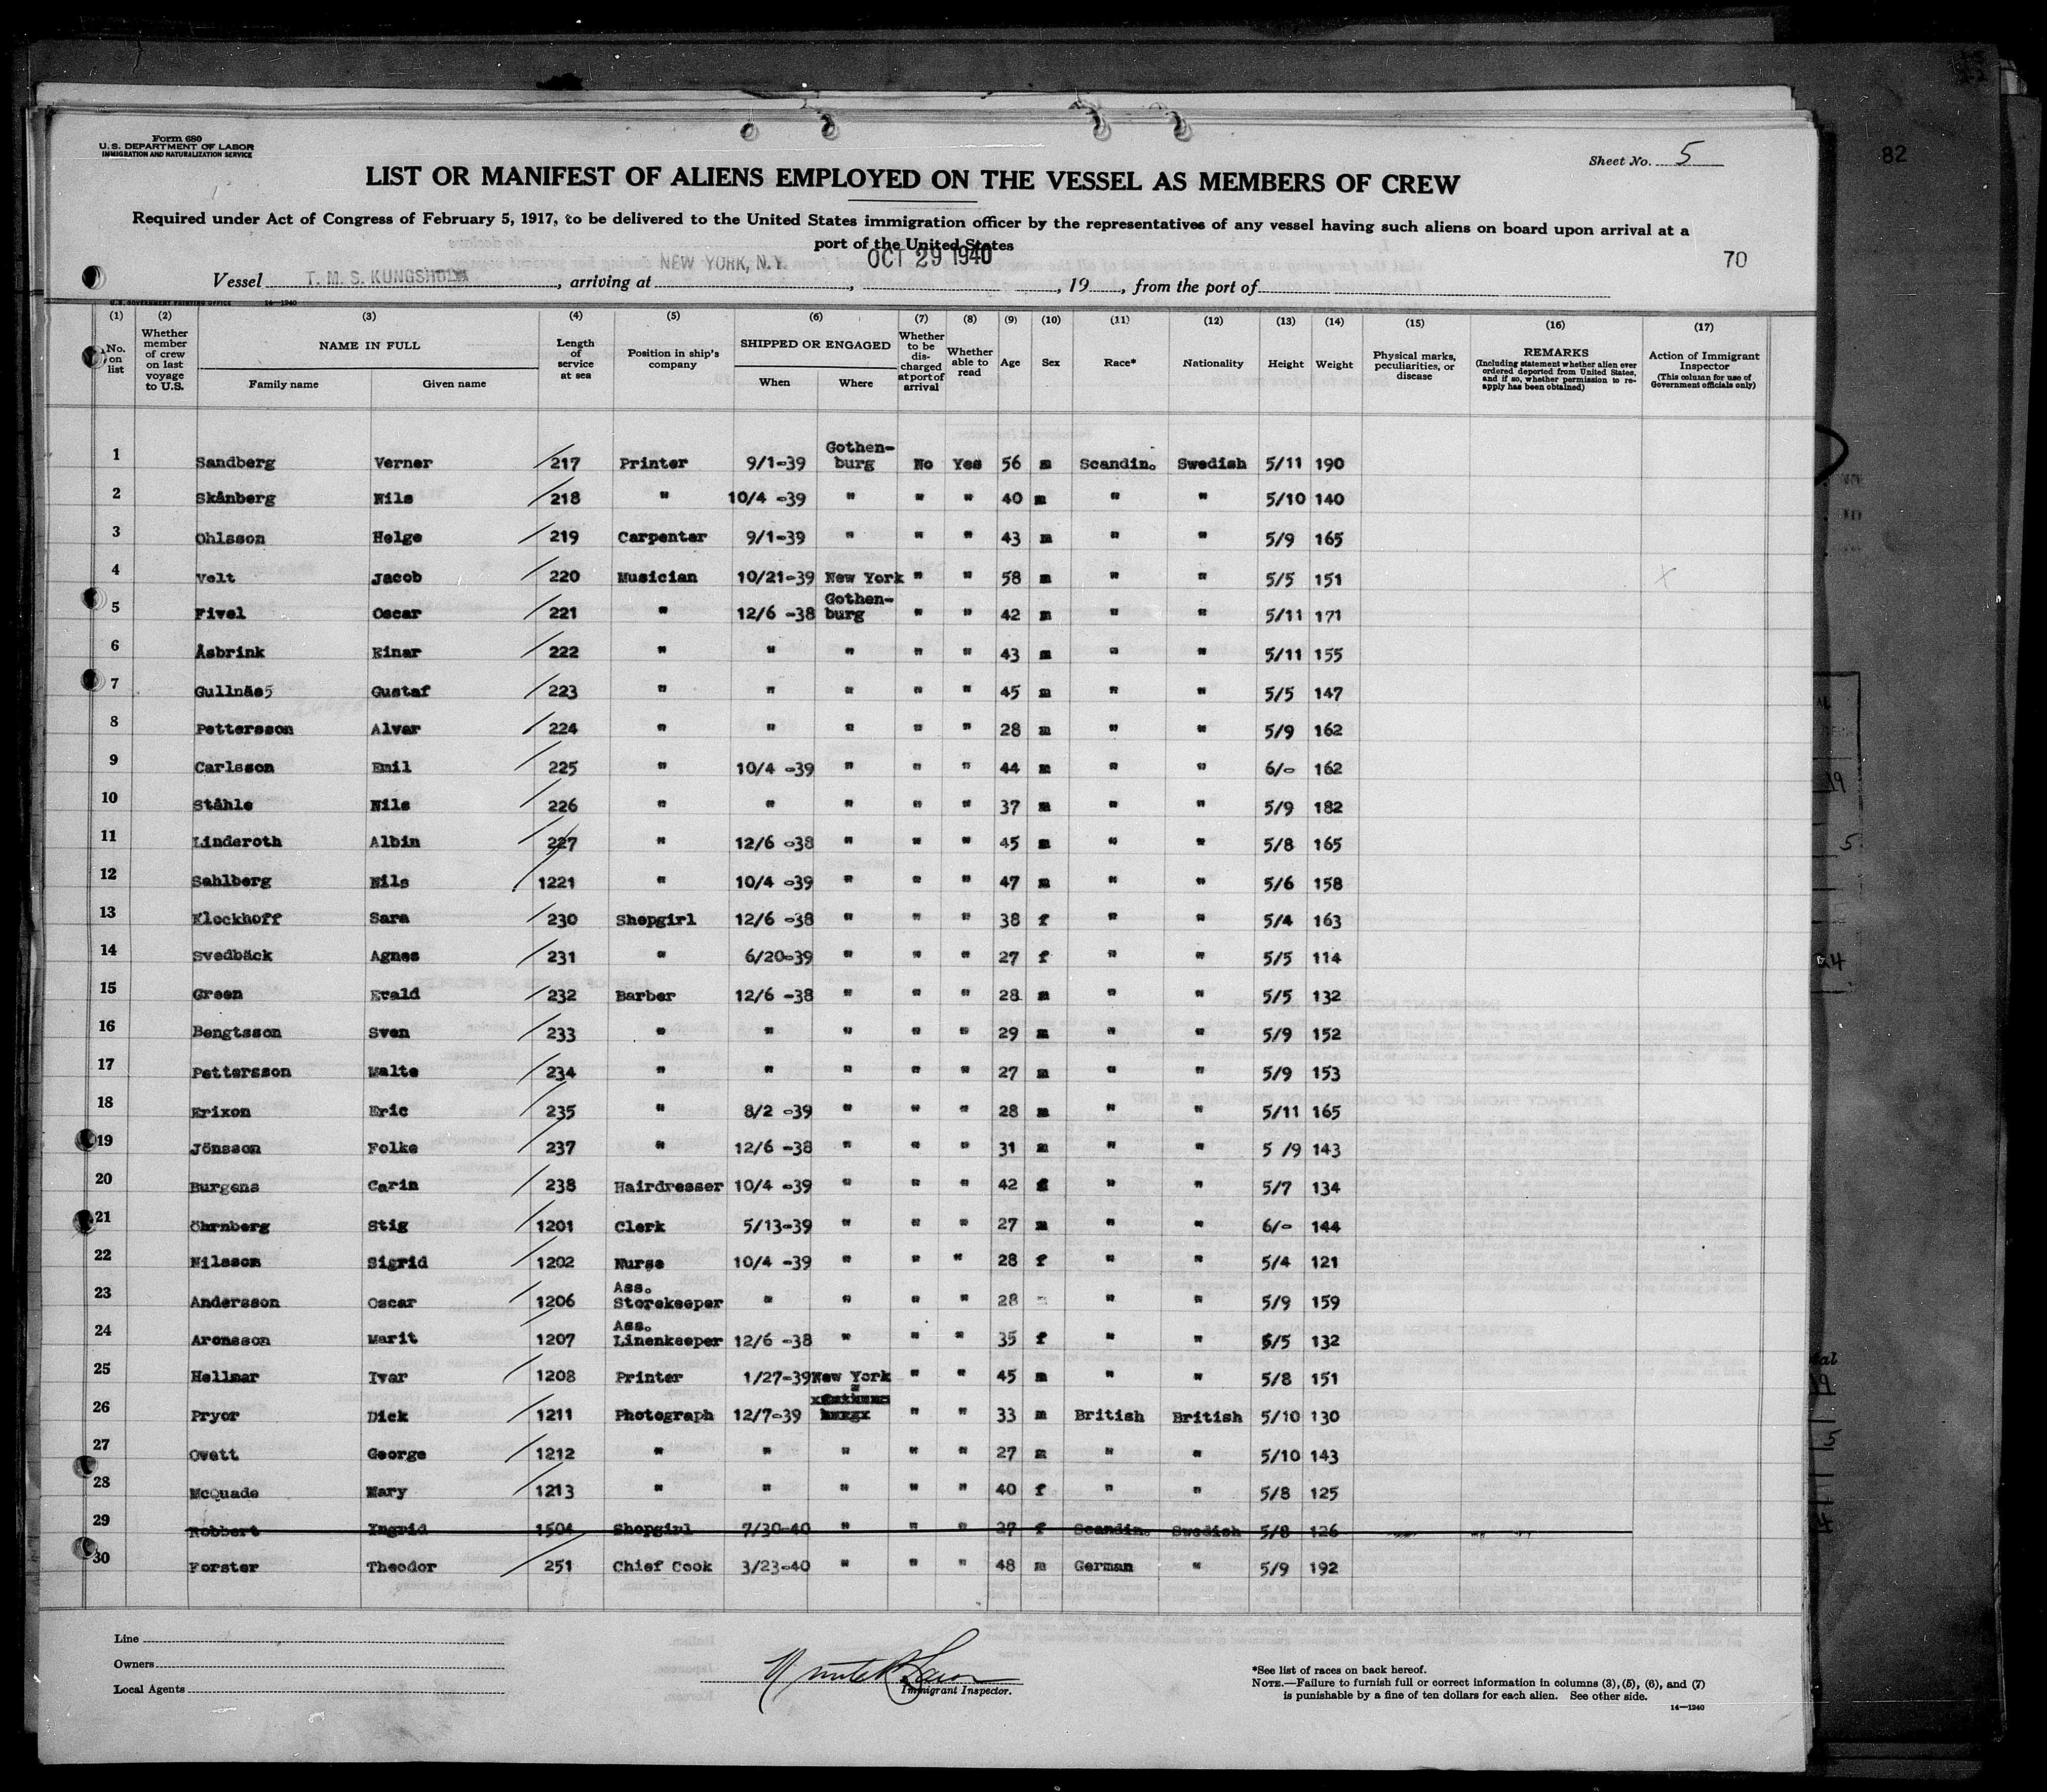 82
Form 680
U. S. DEPARTMENT OF LABOR
IMMIGRATION AND NATURALIZATION SERVICE
Sheet No. 5
LIST OR MANIFEST OF ALIENS EMPLOYED ON THE VESSEL AS MEMBERS OF CREW
Required under Act of Congress of February 5, 1917, to be delivered to the United States immigration officer by the representatives of any vessel having such aliens on board upon arrival at a
port of the United States
70
Vessel T. M. S. KUNGSHOLM, arriving at NEW YORK, N.Y., OCT 29 1940, 19, from the port of
U. S. GOVERNMENT PRINTING OFFICE 14—1240
(1) No. on list (2) Whether member of crew on last voyage to U.S. (3) NAME IN FULL Family name Given name (4) Length of service at sea (5) Position in ship's company (6) SHIPPED OR ENGAGED When Where (7) Whether to be discharged at port of arrival (8) Whether able to read (9) Age (10) Sex (11) Race* (12) Nationality (13) Height (14) Weight (15) Physical marks, peculiarities, or disease (16) REMARKS (Including statement whether alien ever ordered deported from United States, and if so, whether permission to reapply has been obtained) (17) Action of Immigrant Inspector (This column for use of Government officials only)
1 Sandberg Verner 217 Printer 9/1-39 Gothen-burg No Yes 56 m Scandin. Swedish 5/11 190
2 Skånberg Nils 218 " 10/4 -39 " " " 40 m " " 5/10 140
3 Ohlsson Helge 219 Carpenter 9/1-39 " " " 43 m " " 5/9 165
4 Velt Jacob 220 Musician 10/21-39 New York " " 58 m " " 5/5 151 X
5 Fivel Oscar 221 " 12/6 -38 Gothen-burg " " 42 m " " 5/11 171
6 Åsbrink Einar 222 " " " " " 43 m " " 5/11 155
7 Gullnäs5 Gustaf 223 " " " " " 45 m " " 5/5 147
8 Pettersson Alvar 224 " " " " " 28 m " " 5/9 162
9 Carlsson Emil 225 " 10/4 -39 " " " 44 m " " 6/- 162
10 Ståhle Nils 226 " " " " " 37 m " " 5/9 182
11 Linderoth Albin 227 " 12/6 -38 " " " 45 m " " 5/8 165
12 Sahlberg Nils 1221 " 10/4 -39 " " " 47 m " " 5/6 158
13 Klockhoff Sara 230 Shopgirl 12/6 -38 " " " 38 f " " 5/4 163
14 Svedbäck Agnes 231 " 6/20-39 " " " 27 f " " 5/5 114
15 Green Evald 232 Barber 12/6 -38 " " " 28 m " " 5/5 132
16 Bengtsson Sven 233 " " " " " 29 m " " 5/9 152
17 Pettersson Malte 234 " " " " " 27 m " " 5/9 153
18 Erixon Eric 235 " 8/2 -39 " " " 28 m " " 5/11 165
19 Jönsson Folke 237 " 12/6 -38 " " " 31 m " " 5 /9 143
20 Burgens Carin 238 Hairdresser 10/4 -39 " " " 42 f " " 5/7 134
21 Öhrnberg Stig 1201 Clerk 5/13-39 " " " 27 m " " 6/- 144
22 Nilsson Sigrid 1202 Nurse 10/4 -39 " " " 28 f " " 5/4 121
23 Andersson Oscar 1206 Ass. Storekeeper " " " " 28 m " " 5/9 159
24 Aronsson Marit 1207 Ass. Linenkeeper 12/6 -38 " " " 35 f " " 5/5 132
25 Hellmar Ivar 1208 Printer 1/27-39 New York " " 45 m " " 5/8 151
26 Pryor Dick 1211 Photograph 12/7-39 " " " 33 m British British 5/10 130
27 Ovett George 1212 " " " " " 27 m " " 5/10 143
28 McQuade Mary 1213 " " " " " 40 f " " 5/8 125
29 Robbert Ingrid 1504 Shopgirl 7/30-40 " " " 27 f Scandin. Swedish 5/8 126
30 Forster Theodor 251 Chief Cook 3/23-40 " " " 48 m German " 5/9 192
Line
Owners
Local Agents
Immigrant Inspector.
*See list of races on back hereof.
NOTE.—Failure to furnish full or correct information in columns (3), (5), (6), and (7)
is punishable by a fine of ten dollars for each alien. See other side.
14—1240